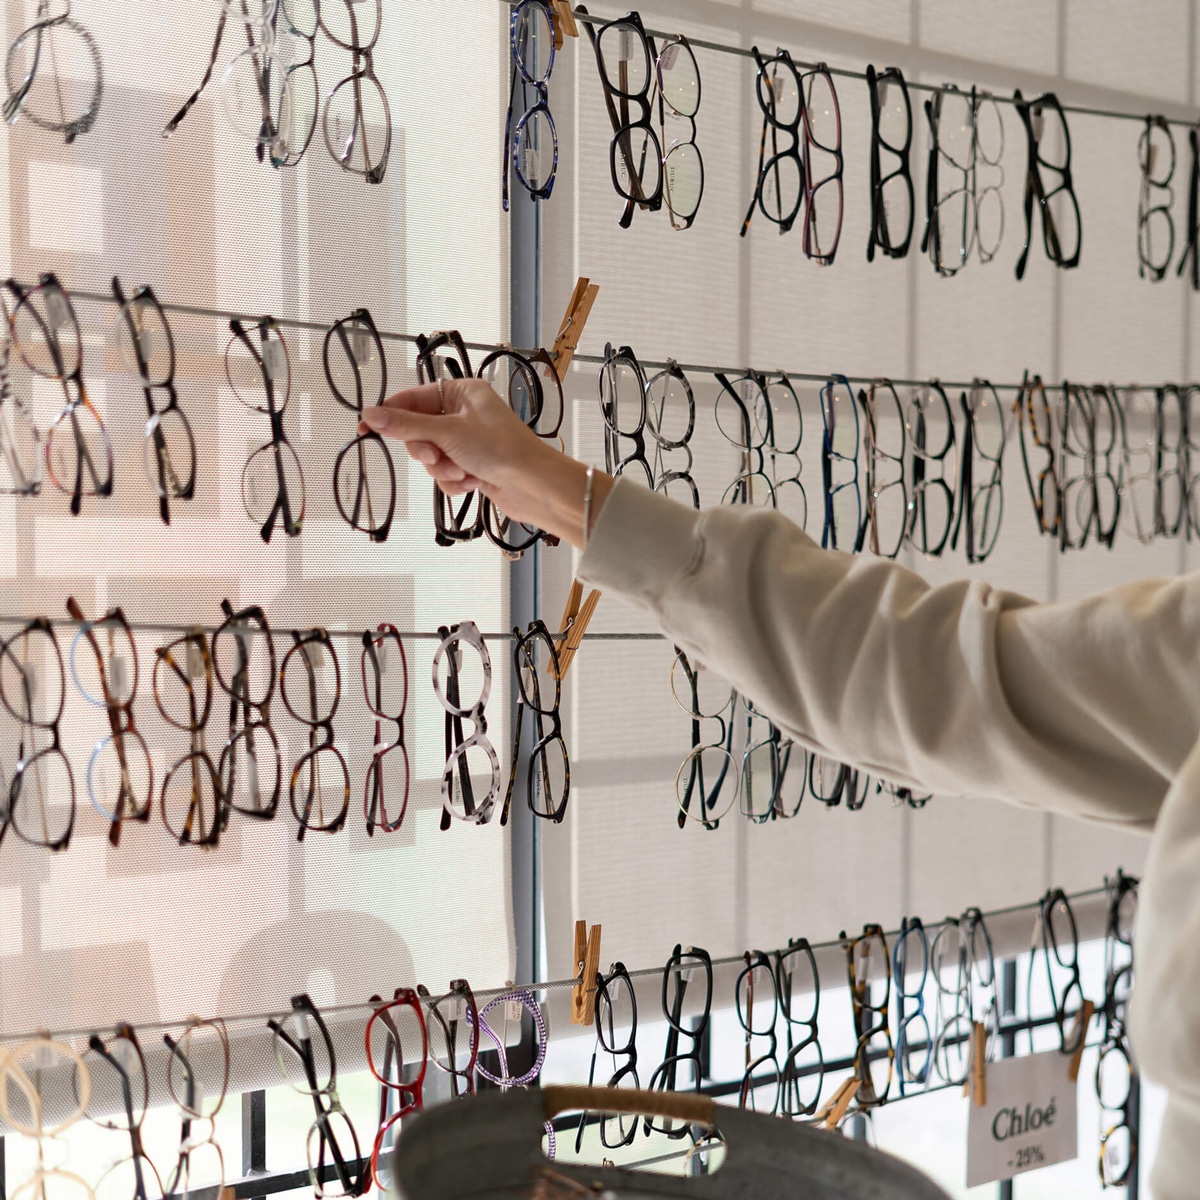 Chloé
-25%